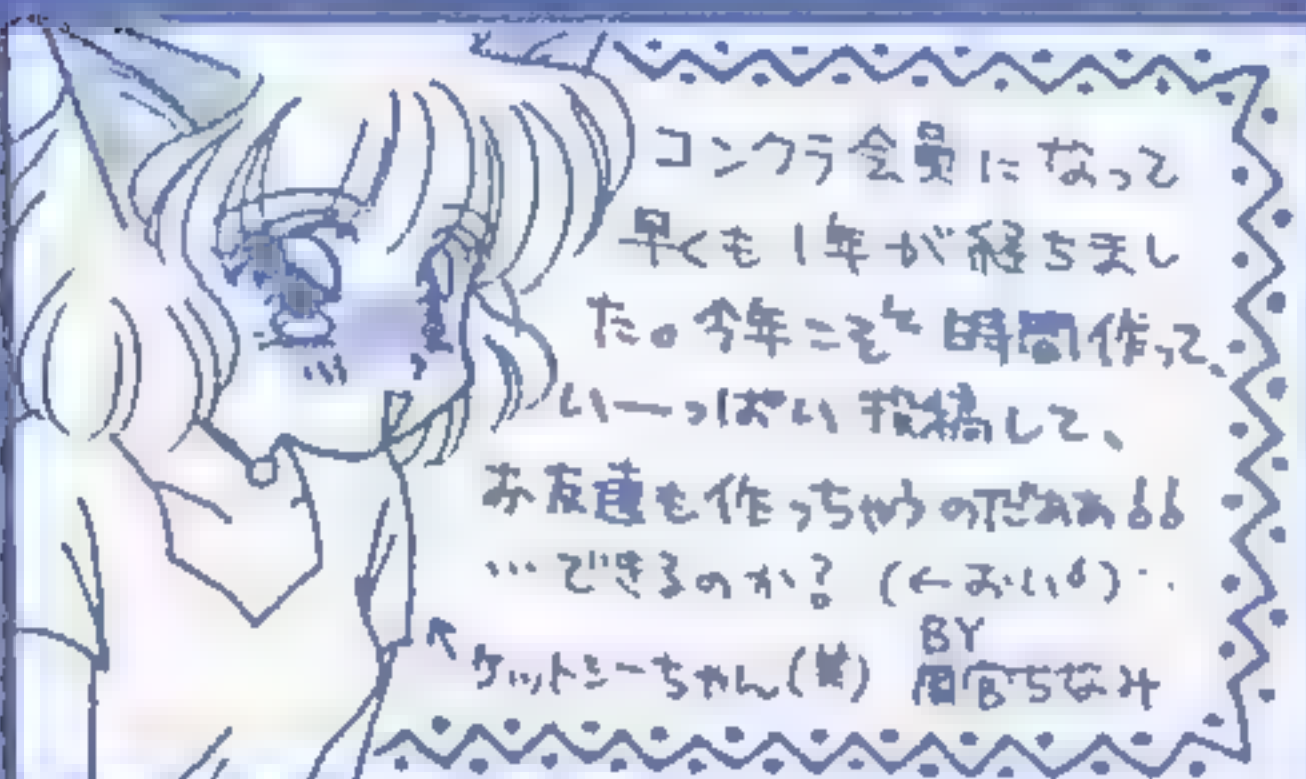 コンクラ会員になって
早くも1年が経ちまし
た。今年こそ時間作って、
い一っぱい投稿して、
お友達も作っちゃうのだぁぁ!!
…できるのか? (←おい!)‥
↖ケットシーちゃん(笑) BY
ちなみ